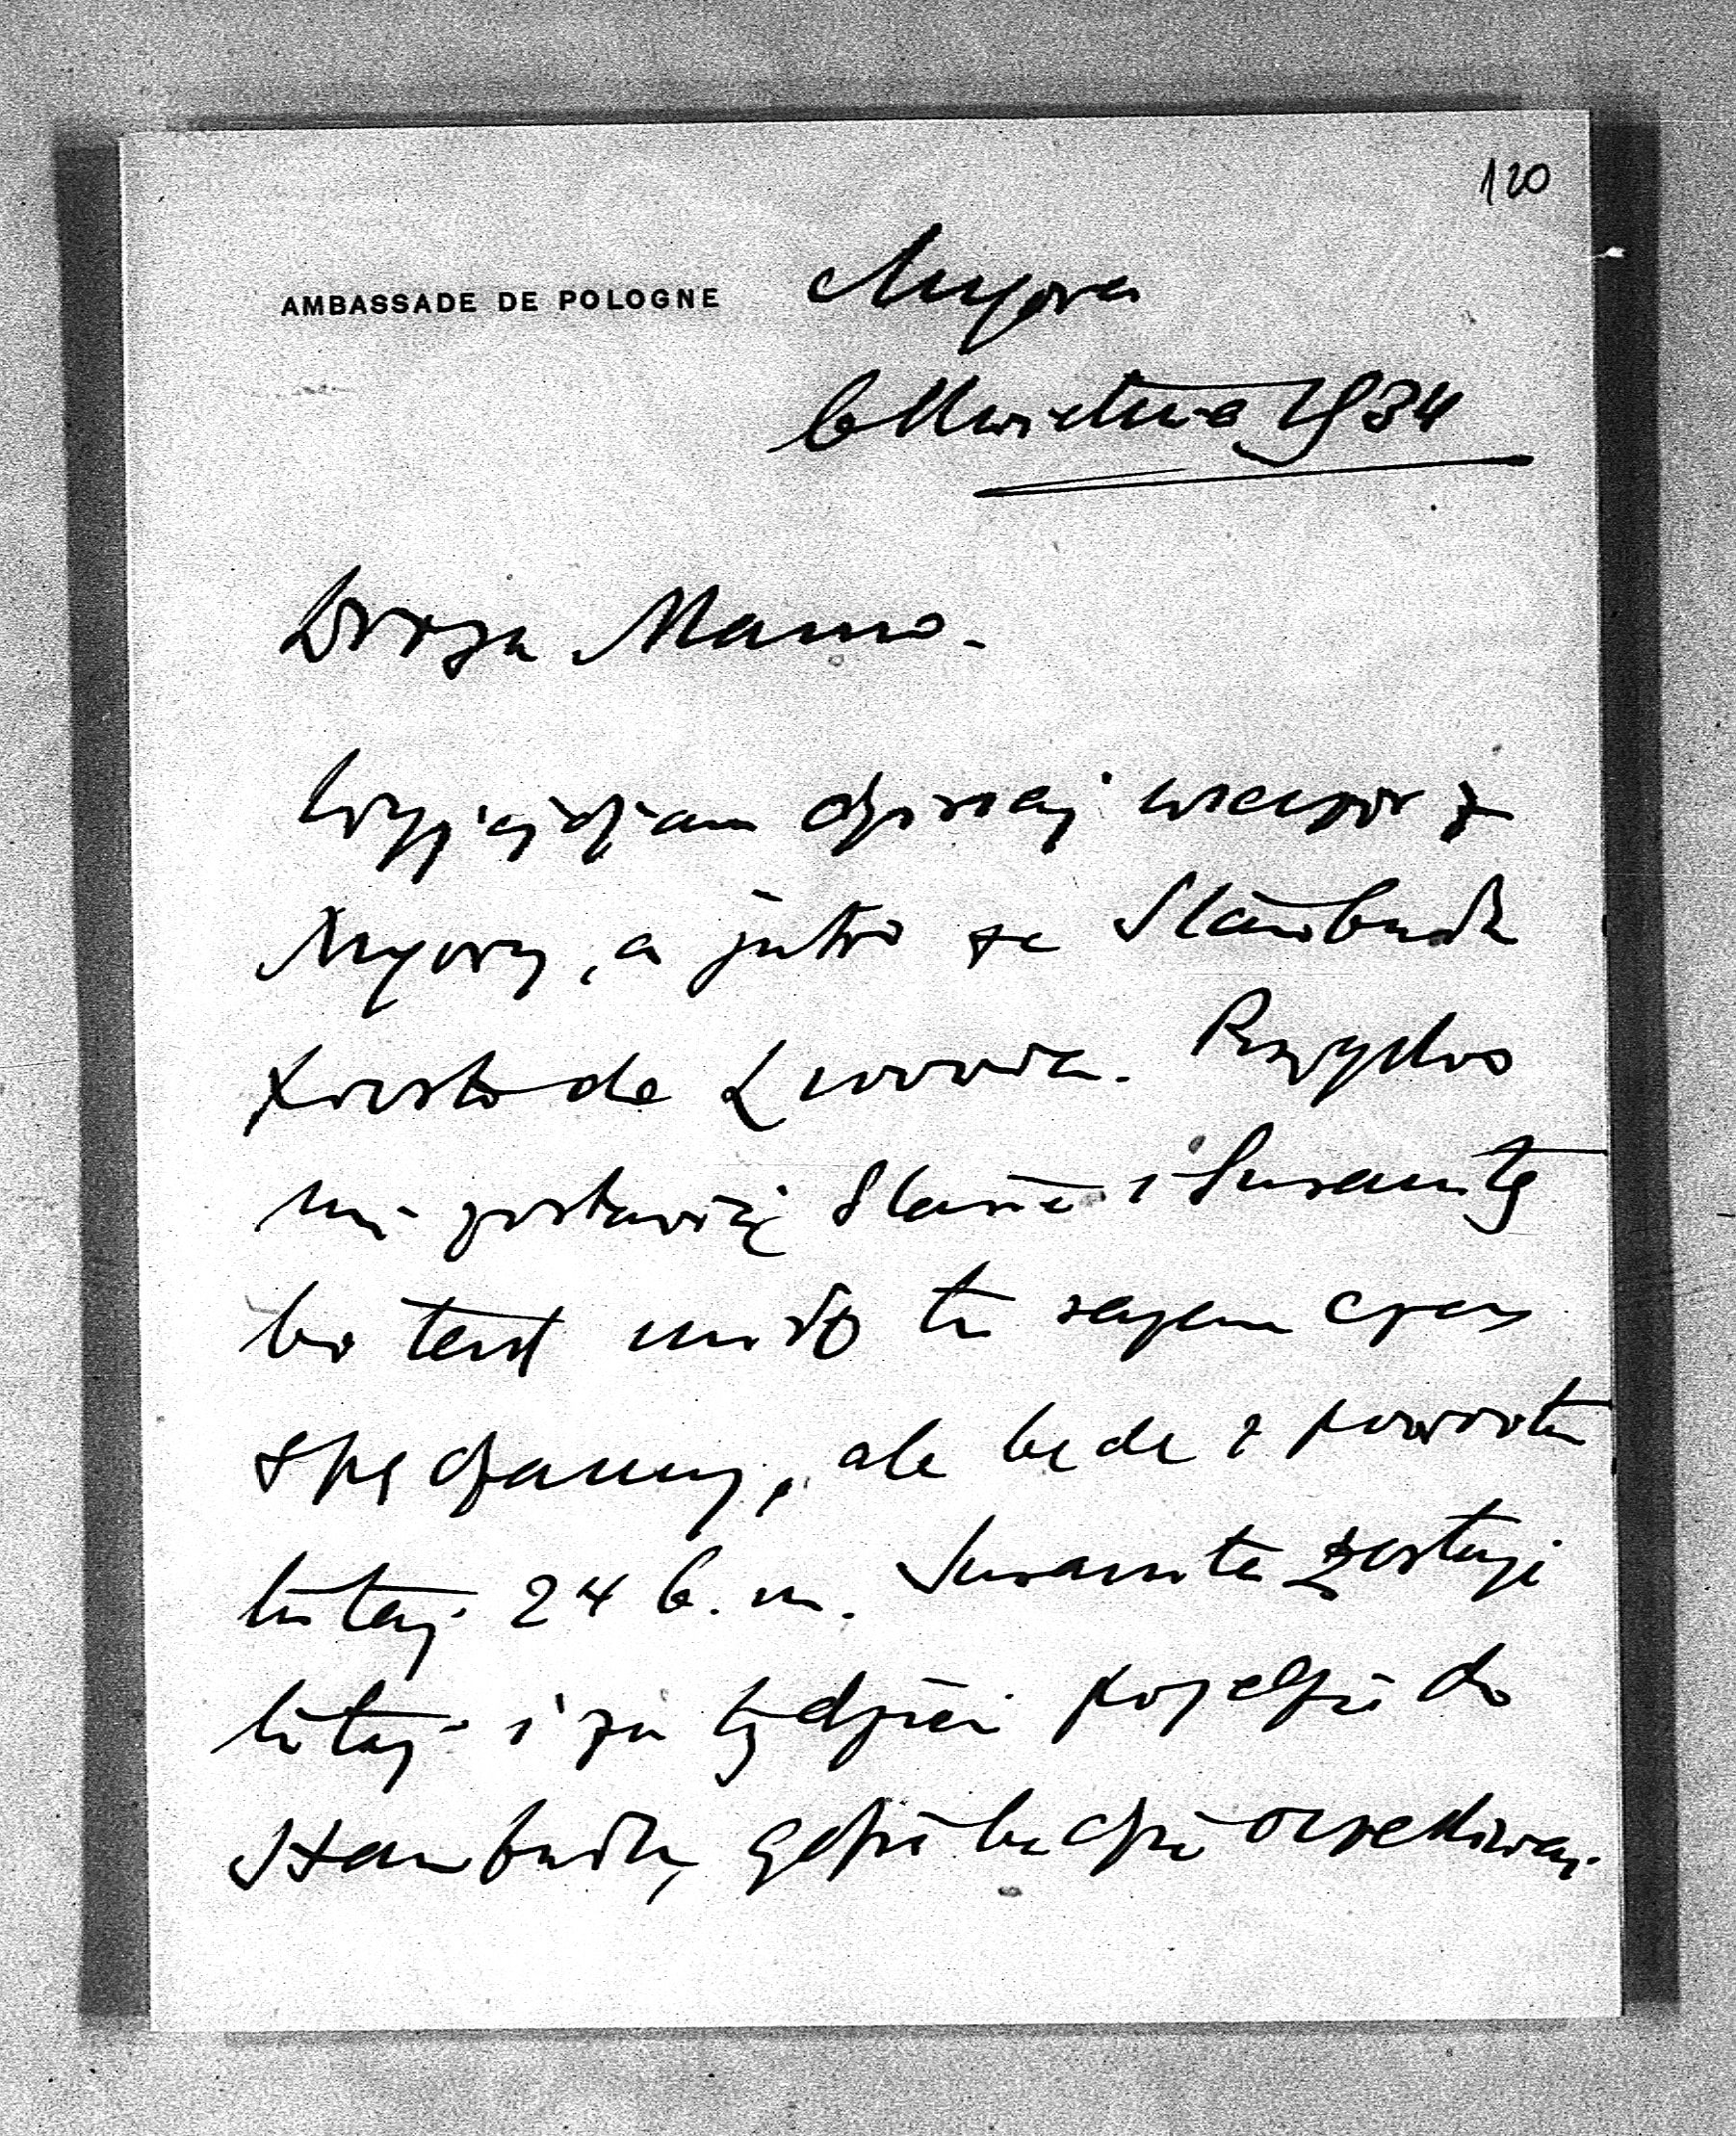 120
AMBASSADE DE POLOGNE
Angora
6 Kwietnia 1934
Droga Mamo.
Wyjeżdżam dzisiaj wieczór z
Angory, a jutro ze Stambułu
do Lwowa. Przykro
mi zostawić Stasię i Susannę
bo teraz miło tu razem czas
spędzamy, ale będę z powrotem
tutaj 24 b.m. Susanna zostaje
tutaj i za tydzień pojedzie do
Stambułu, gdzie będzie oczekiwać